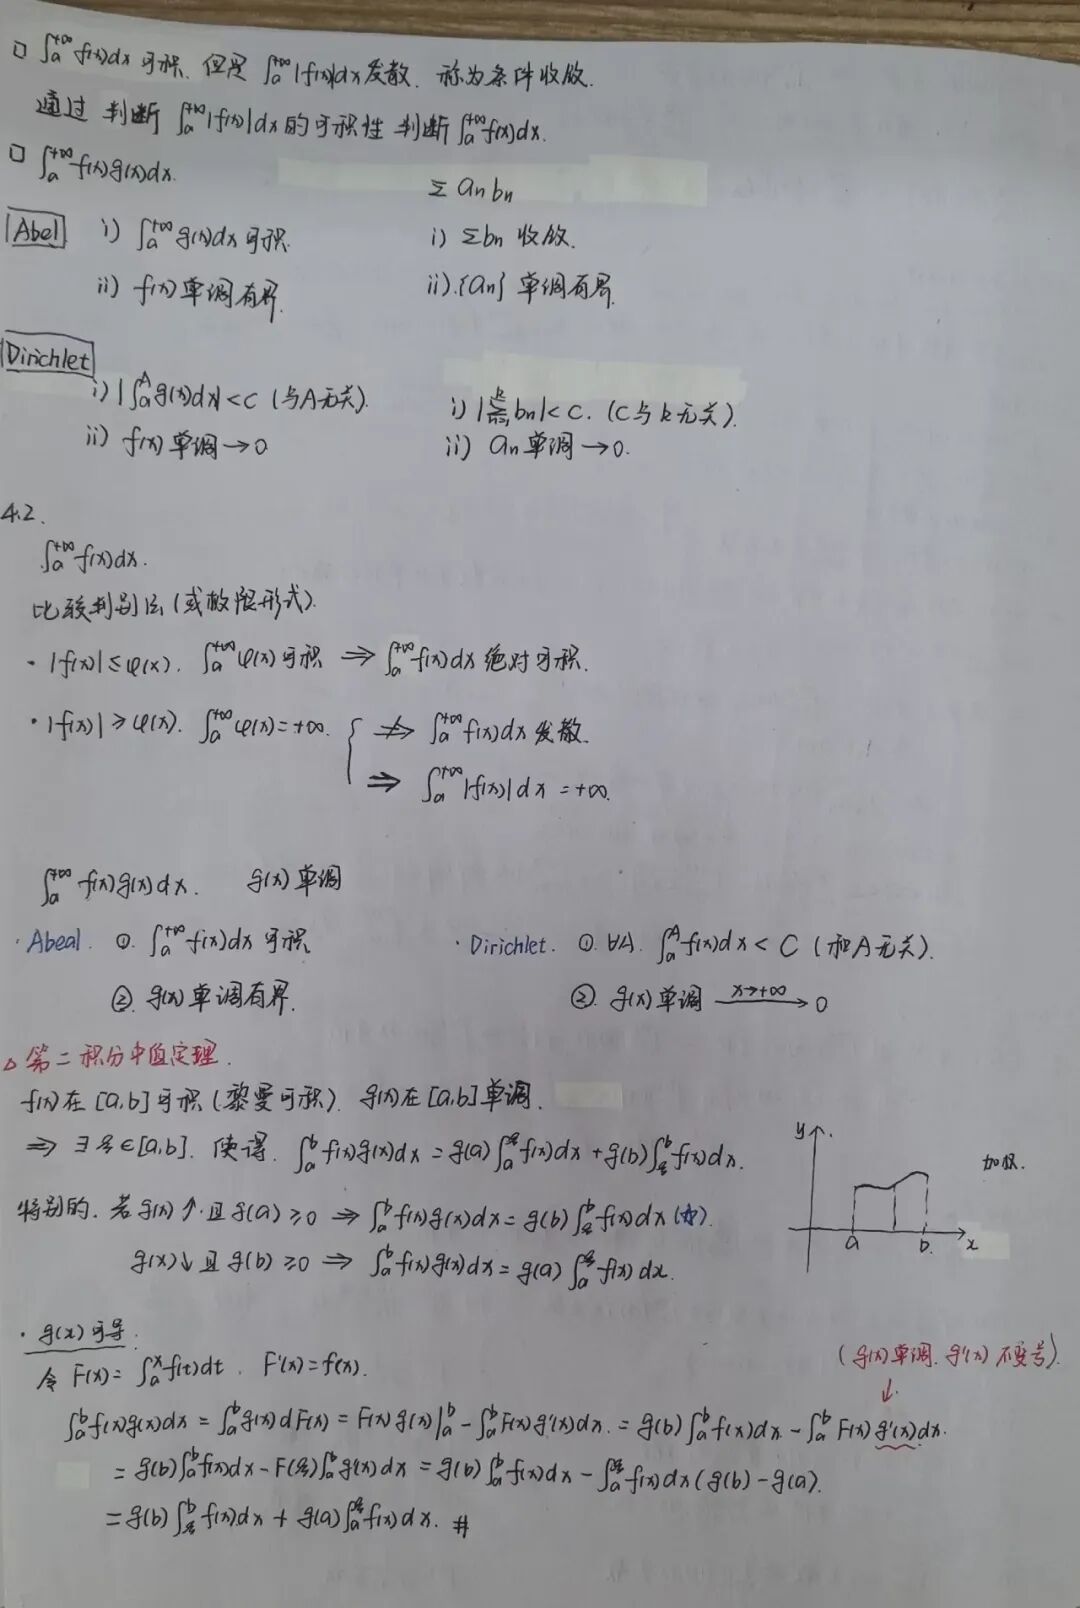 □ ∫_a^{+∞} f(x)dx 可积. 但是 ∫_a^{+∞} |f(x)|dx 发散. 称为条件收敛.
通过 判断 ∫_a^{+∞} |f(x)|dx 的可积性 判断 ∫_a^{+∞} f(x)dx.
□ ∫_a^{+∞} f(x)g(x)dx. Σ a_n b_n
Abel i) ∫_a^{+∞} g(x)dx 可积. i) Σb_n 收敛.
ii) f(x) 单调有界. ii). {a_n} 单调有界.
Dirichlet
i) |∫_a^A g(x)dx| < C (与A无关). i) |Σ_{n=1}^k b_n| < C. (C与k无关).
ii) f(x) 单调 → 0 ii) a_n 单调 → 0.
4.2.
∫_a^{+∞} f(x)dx.
比较判别法 (或极限形式).
· |f(x)| ≤ φ(x). ∫_a^{+∞} φ(x) 可积 ⇒ ∫_a^{+∞} f(x)dx 绝对可积.
· |f(x)| ≥ φ(x). ∫_a^{+∞} φ(x) = +∞. { ⇏ ∫_a^{+∞} f(x)dx 发散.
⇒ ∫_a^{+∞} |f(x)|dx = +∞.
∫_a^{+∞} f(x)g(x)dx. g(x) 单调
· Abeal. ①. ∫_a^{+∞} f(x)dx 可积 · Dirichlet. ①. ∀A. ∫_a^A f(x)dx < C (和A无关).
②. g(x) 单调有界. ②. g(x) 单调 —x→+∞→ 0
△ 第二积分中值定理.
f(x) 在 [a,b] 可积 (黎曼可积). g(x) 在 [a,b] 单调.
⇒ ∃ ξ ∈ [a,b]. 使得. ∫_a^b f(x)g(x)dx = g(a) ∫_a^ξ f(x)dx + g(b) ∫_ξ^b f(x)dx.
y 加权.
a b. x
特别的. 若 g(x) ↑ 且 g(a) ≥ 0 ⇒ ∫_a^b f(x)g(x)dx = g(b) ∫_ξ^b f(x)dx (☆).
g(x) ↓ 且 g(b) ≥ 0 ⇒ ∫_a^b f(x)g(x)dx = g(a) ∫_a^ξ f(x)dx.
· g(x) 可导.
令 F(x) = ∫_a^x f(t)dt. F'(x) = f(x).
(g(x) 单调. g'(x) 不变号).
↓.
∫_a^b f(x)g(x)dx = ∫_a^b g(x)dF(x) = F(x)g(x)|_a^b - ∫_a^b F(x)g'(x)dx. = g(b) ∫_a^b f(x)dx - ∫_a^b F(x)g'(x)dx.
= g(b) ∫_a^b f(x)dx - F(ξ) ∫_a^b g'(x)dx = g(b) ∫_a^b f(x)dx - ∫_a^ξ f(x)dx (g(b) - g(a).
= g(b) ∫_ξ^b f(x)dx + g(a) ∫_a^ξ f(x)dx. #